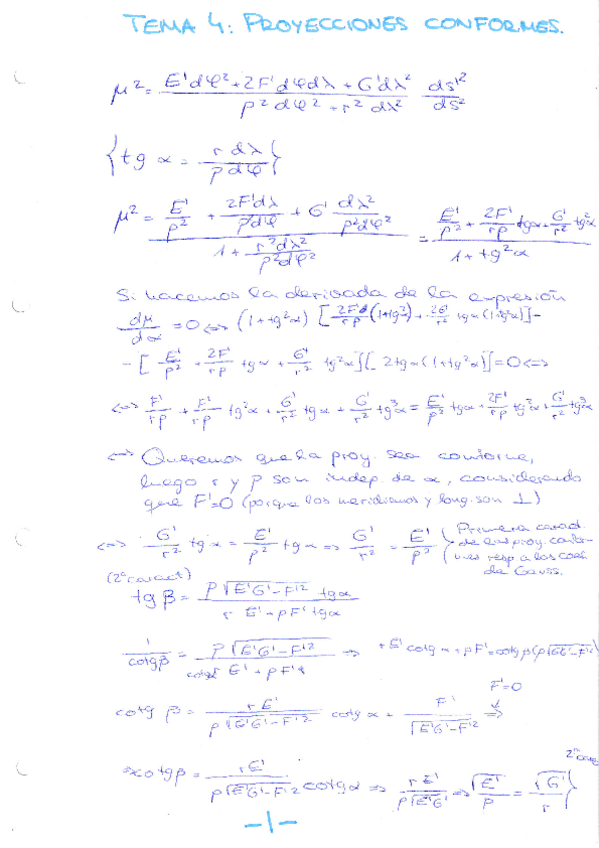 TEMA 4: PROYECCIONES CONFORMES.
μ² = (E'dφ² + 2F'dφdλ + G'dλ²) / (ρ²dφ² + r²dλ²) ds'²/ds²
{tg α = r dλ / ρ dφ}
μ² = (E'/ρ² + 2F'dλ/ρdφ + G' dλ²/ρ²dφ²) / (1 + r²dλ²/ρ²dφ²) = (E'/ρ² + 2F'/rρ tgα + G'/r² tg²α) / (1 + tg²α)
Si hacemos la derivada de la expresión
dμ/dα = 0 <=> (1+tg²α) [2F'/rρ (1+tg²) + 2G'/r² tgα (1+tg²α)] -
- [E'/ρ² + 2F'/rρ tgα + G'/r² tg²α][2tgα(1+tg²α)] = 0 <=>
<=> F'/rρ + F'/rρ tg²α + G'/r² tgα + G'/r² tg³α = E'/ρ² tgα + 2F'/rρ tg²α + G'/r² tg³α
<=> Queremos que la proy. sea conforme,
luego r y ρ son indep. de α, considerando
que F'=0 (porque los meridianos y long. son ⊥)
<=> G'/r² tgα = E'/ρ² tgα => G'/r² = E'/ρ² {Primera caract. de las proy. confor- mes resp a los coef. de Gauss.
(2ª caract)
tg β = ρ√(E'G'-F'²) tgα / (r E' + ρF' tgα)
1/cotgβ = ρ√(E'G'-F'²) / (E' + ρF') => rE' cotgα + ρF' = cotgβ(ρ√(E'G'-F'²))
F'=0
cotg β = rE' / ρ√(E'G'-F'²) cotgα + F' / √(E'G'-F'²) =>
=> cotgβ = rE' / ρ√(E'G'-F'²) cotgα => rE' / ρ√(E'G') => √E'/ρ = √G'/r } 2ª
-1-